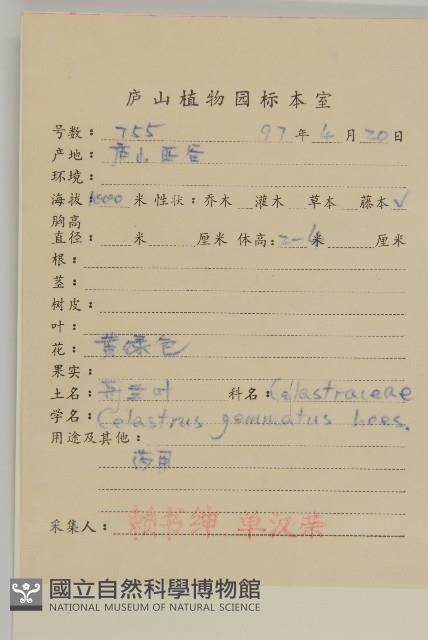 庐山植物园标本室
号数：755 97年4月20日
产地：庐山
环境：
海拔：1000米 性状：乔木 灌木 草本 藤本✓
胸高
直径： 米 厘米 体高：2-4米 厘米
根：
茎：
树皮：
叶：
花：黄绿色
果实：
土名： 科名：Celastraceae
学名：Celastrus gemmatus Loes.
用途及其他：
药用
采集人：赖书绅 单汉荣
國立自然科學博物館
NATIONAL MUSEUM OF NATURAL SCIENCE